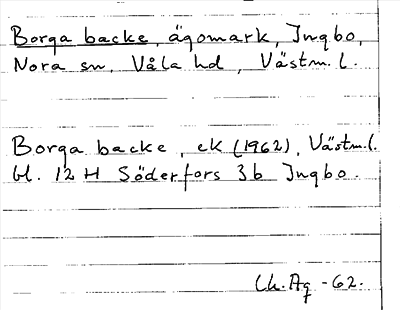 Borga backe, ägomark, Ingbo,
Nora sn, Våla hd, Västm. l.
Borga backe, ek (1962), Västm.l.
bl. 12 H Söderfors 3b Ingbo.
Ch. Ag -62.